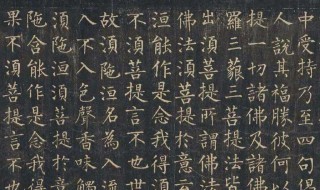 中受持乃至四句偈
人說其福勝彼何以
提一切諸佛及諸佛
羅三藐三菩提法皆
出須菩提所謂佛法
佛法須菩提於意云
洹能作是念我得須
不須菩提言不也世
故須陁洹名為入流
入不入色聲香味觸
須陁洹須菩提於意
陁含能作是念我得
果不須菩提言不也